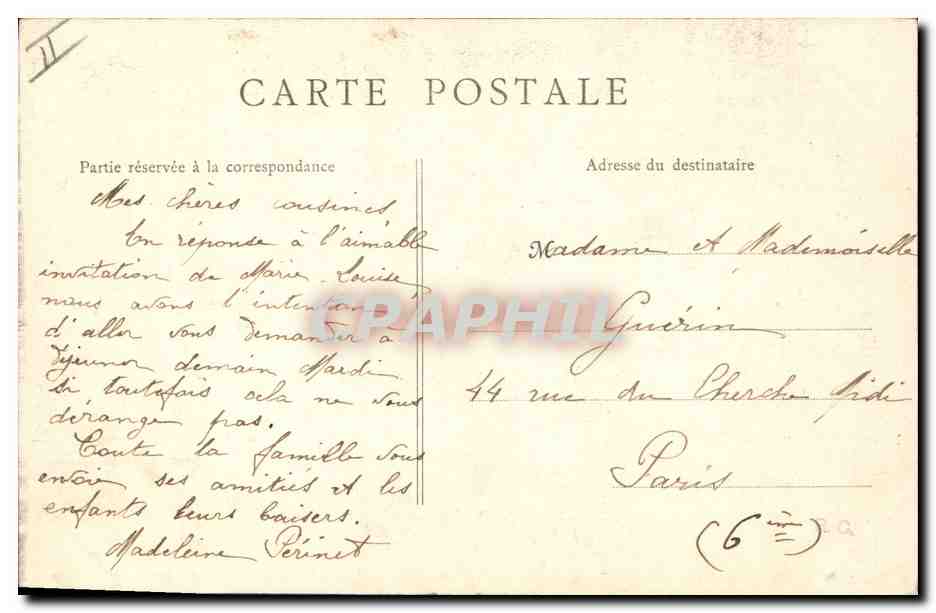 11
CARTE POSTALE
Partie réservée à la correspondance
Adresse du destinataire
Mes chères cousines
En réponse à l'aimable
invitation de Marie-Louise,
nous avons l'intention
d'aller vous demander à
déjeuner demain Mardi
si toutefois cela ne vous
dérange pas.
Toute la famille vous
envoie ses amitiés et les
enfants leurs baisers.
Madeleine Périnet
Madame et Mademoiselle
Guérin
44 rue du Cherche Midi
Paris
(6ème)
CPAPHIL